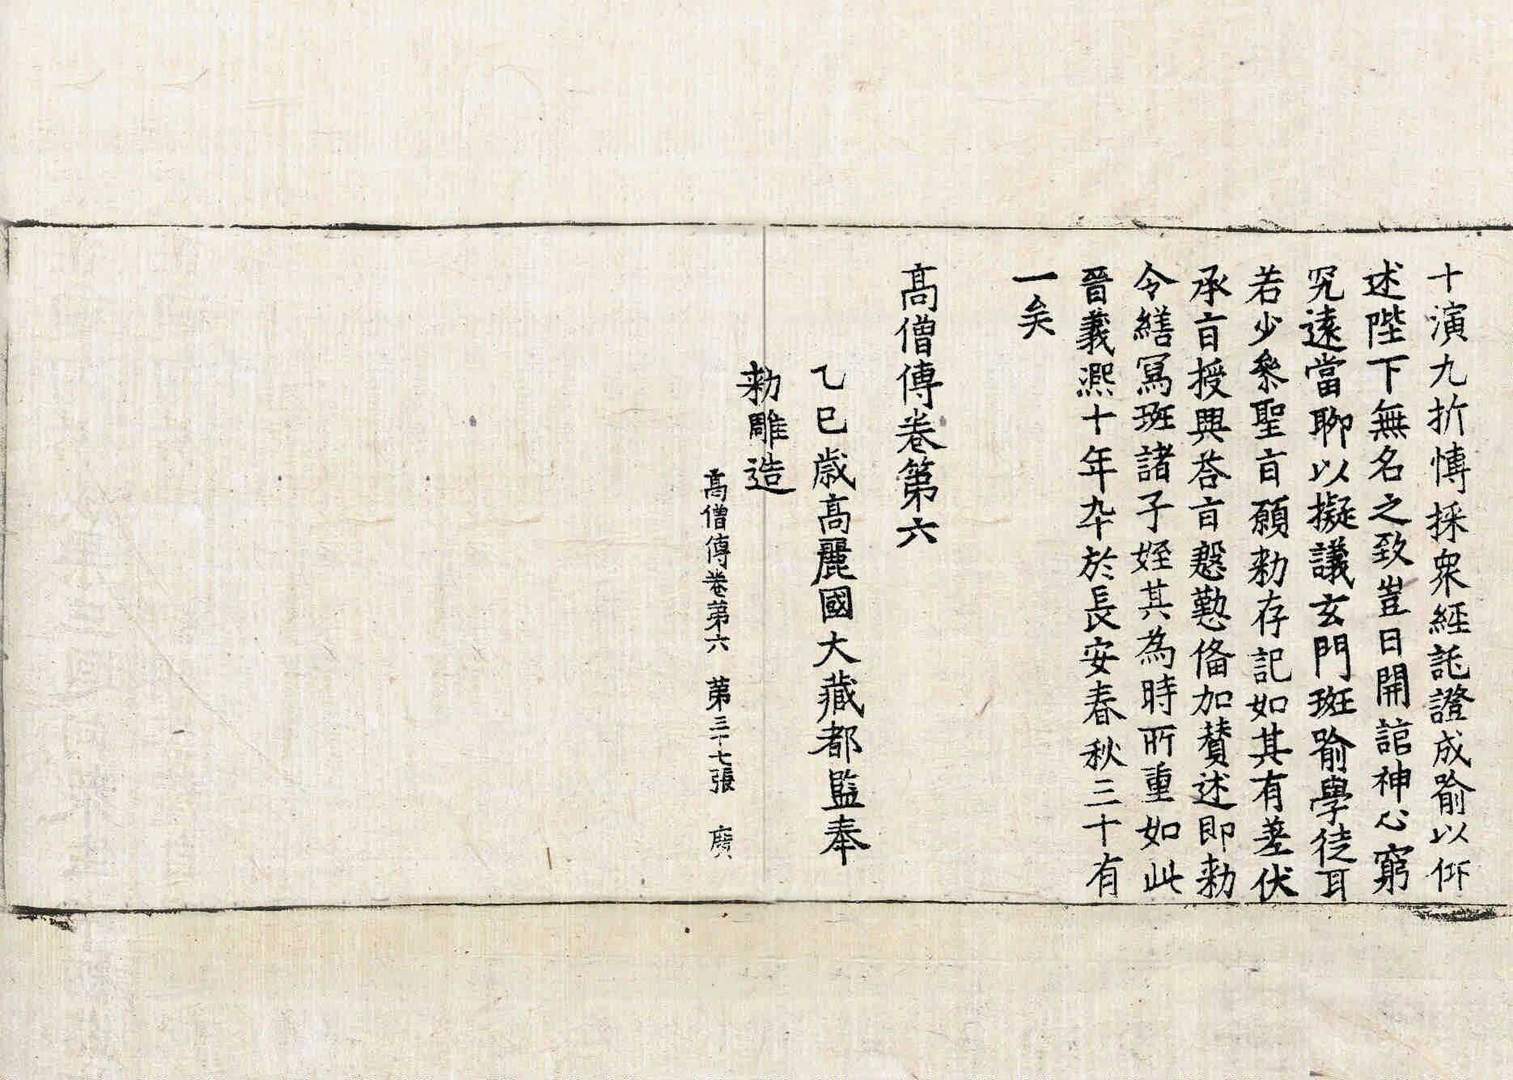 十演九折愽採衆經託證成喻以仰
述陛下無名之致豈曰開詣神心窮
究遠當聊以擬議玄門班喻學徒耳
若少叅聖旨願勑存記如其有差伏
承旨授興荅旨慇懃俻加賛述即勑
令繕寫班諸子姪其為時所重如此
晉義熈十年卒於長安春秋三十有
一矣
髙僧傳卷第六
乙巳歳高麗國大藏都監奉
勑雕造
髙僧傳卷第六 第三十七張 廣